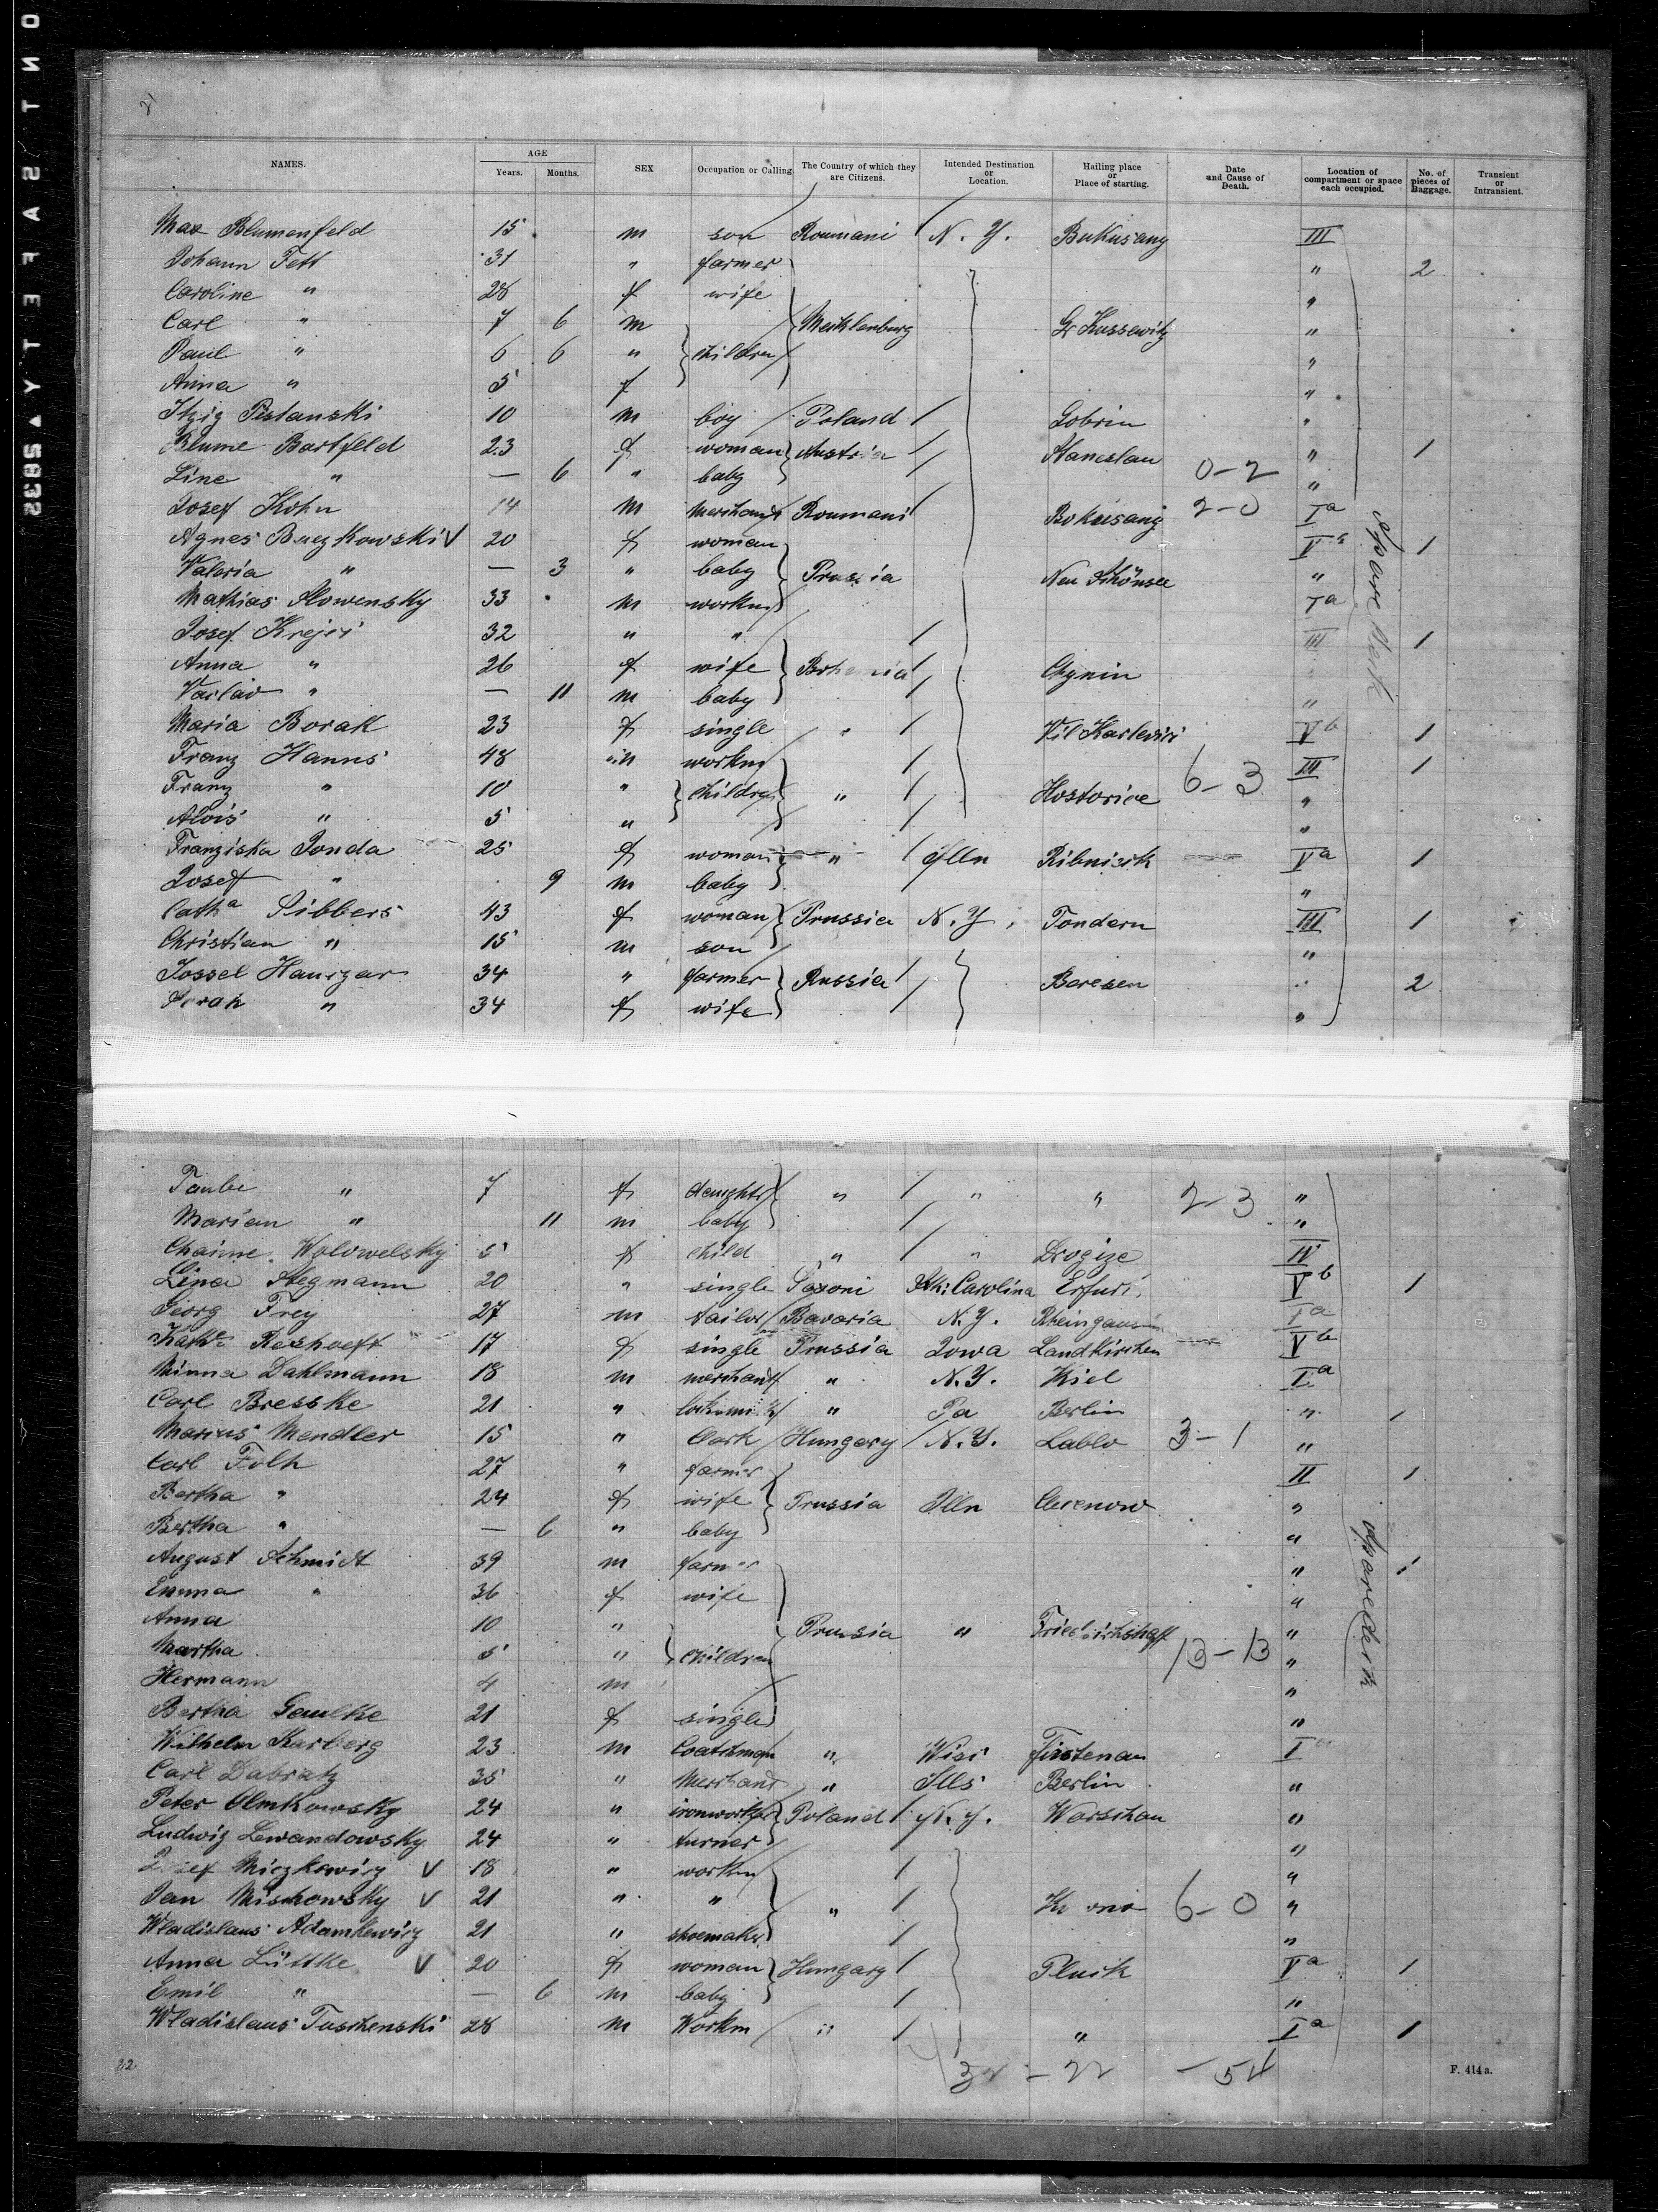 21
NAMES. AGE Years. Months. SEX Occupation or Calling The Country of which they are Citizens. Intended Destination or Location. Hailing place or Place of starting. Date and Cause of Death. Location of compartment or space each occupied. No. of pieces of Baggage. Transient or Intransient.
Max Blumenfeld 15 m son Roumani N. Y. Bukusang III
Johann Fett 31 " farmer " 2
Caroline " 28 f wife "
Carl " 7 6 m Mecklenburg Gr Kussewitz "
Paul " 6 6 " children "
Anna " 5 f "
Itzig Peslanski 10 m boy Poland Gobrin "
Blume Bartfeld 23 f woman Austria Stanislau " 1
Line " — 6 " baby 0-2 "
Josef Kohn 14 m merchant Roumani Bokusang 2-0 Ia
Agnes Buczkowski V 20 f woman Va 1
Valeria " — 3 " baby Prussia Neu Schönsee "
Mathias Slowensky 33 m workm Ia
Josef Krejci 32 " " III 1
Anna " 26 f wife Bohemia Chynin
Vaclav " — 11 m baby "
Maria Borak 23 f single " Vb 1
Franz Hanns 48 m workm 6-3 III 1
Franz " 10 " children " Hostovice "
Alois " 5 " "
Franziska Jonda 25 f woman " Illn Va 1
Josef " 9 m baby "
Catha Sibbers 43 f woman Prussia N. Y. Tondern III 1
Christian " 15 m son "
Jossel Hauszar 34 " farmer Russia Beresen " 2
" 34 f wife "
Spare Deck
Taube " 7 f daughter " " " 2-3 "
Marian " 11 m baby "
Chaime Wolowelsky 5 f child " " Drogize IV
Lina Stegmann 20 " single Saxoni Carolina Erfurt Vb 1
Georg Frey 27 m tailor Bavaria N.Y. Ia
Kathe Reshoeft 17 f single Prussia Iowa Landkirchen Vb
Minna Dahlmann 18 m merchant " N.Y. Kiel Ia
Carl Bresske 21 " " Pa Berlin " 1
Marius Mendler 15 " Clerk Hungary N.Y. Lablo 3-1 "
Carl Folh 27 " farmer II 1
Bertha " 24 f wife Prussia Illn "
Bertha " — 6 " baby "
August Schmidt 39 m farmer " 1
Emma " 36 f wife "
Anna 10 " Prussia " "
Martha 5 " children 13-13 "
Hermann 4 m "
Bertha Gaulke 21 f single "
Wilhelm Karberg 23 m Coachman " Wisc Fürstenau I
Carl Dabratz 35 " Merchant " Ills Berlin "
Peter Olmkowsky 24 " ironworker Poland N.Y. Warschau "
Ludwig Lewandowsky 24 " turner "
Josef V 18 " workm "
Jan Mischowsky V 21 " " " 6-0 "
Wladislaus Adamkewicz 21 " shoemaker "
Anna Lüttke V 20 f woman Hungary Plusk Va 1
Emil " — 6 m baby "
Wladislaus Tuschenski 28 m Workm " " Ia 1
Spare Deck
22
32 - 22 - 54
F. 414 a.